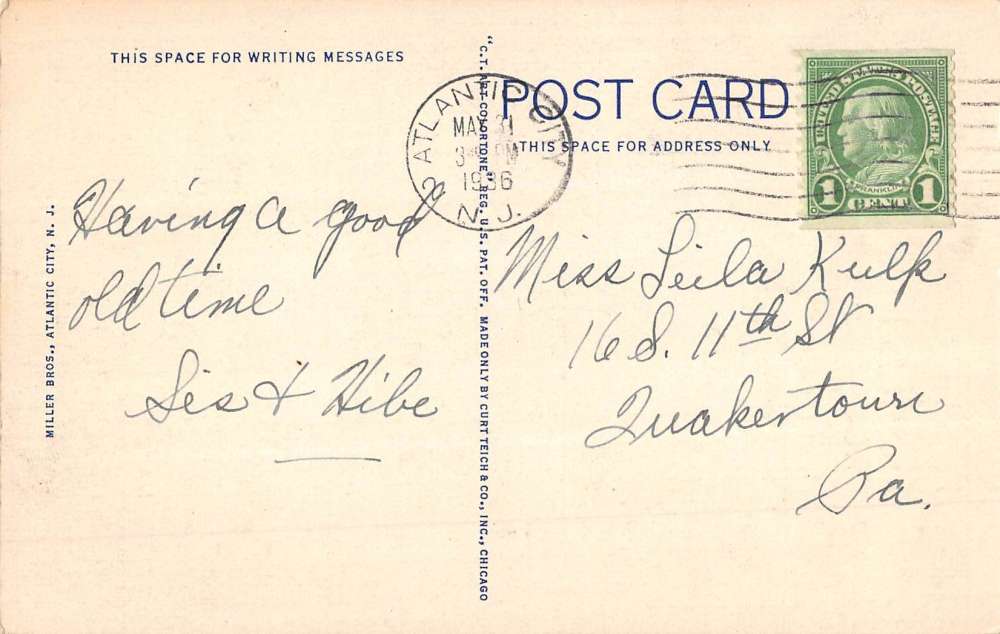 THIS SPACE FOR WRITING MESSAGES
POST CARD
THIS SPACE FOR ADDRESS ONLY
ATLANTIC CITY
2
MAY 31
3 PM
1936
N. J.
UNITED STATES POSTAGE
FRANKLIN
1 CENT 1
Having a good
old time
Sis & Hibe
Miss Leila Kulp
16 S. 11th St
Quakertown
Pa.
MILLER BROS., ATLANTIC CITY, N. J.
"C.T. ART-COLORTONE" REG. U.S. PAT. OFF. MADE ONLY BY CURT TEICH & CO., INC., CHICAGO